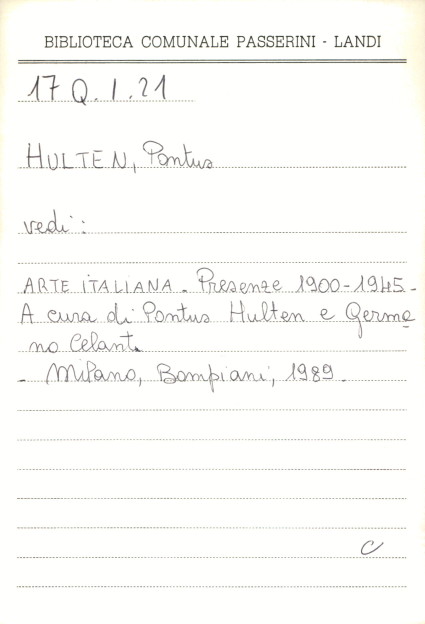 BIBLIOTECA COMUNALE PASSERINI - LANDI
17 Q. I. 21
HULTEN, Pontus
vedi:
ARTE ITALIANA. Presenze 1900-1945.
A cura di Pontus Hulten e Germa
no Celant.
- Milano, Bompiani, 1989.
C